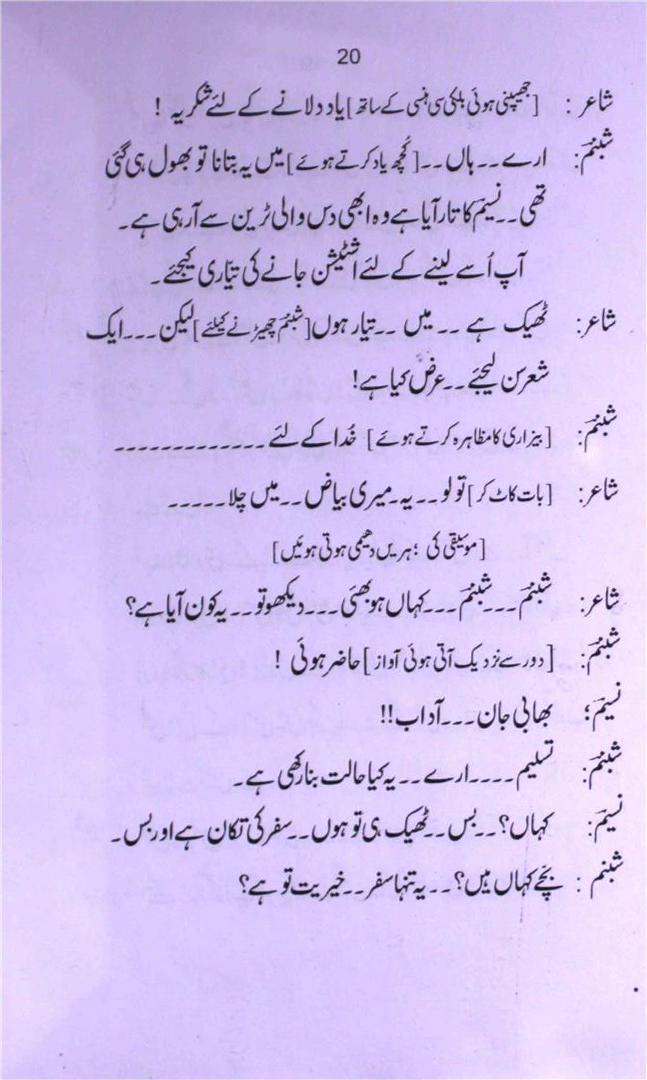 20
شاعر : [جھینپی ہوئی ہلکی سی ہنسی کے ساتھ] یاد دلانے کے لئے شکریہ !
شبنمؔ: ارے ۔۔ ہاں ۔۔ [کُچھ یاد کرتے ہوئے] میں یہ بتانا تو بھول ہی گئی
تھی ۔۔ نسیمؔ کا تار آیا ہے وہ ابھی دس والی ٹرین سے آ رہی ہے ۔
آپ اُسے لینے کے لئے اسٹیشن جانے کی تیّاری کیجئے ۔
شاعر: ٹھیک ہے ۔۔ میں ۔۔ تیار ہوں [شبنمؔ چھیڑنے کیلئے] لیکن ۔۔۔ ایک
شعر سن لیجئے ۔۔ عرض کیا ہے!
شبنمؔ: [بیزاری کا مظاہرہ کرتے ہوئے] خُدا کے لئے ۔۔۔۔۔۔۔۔۔۔۔۔۔
شاعر: [بات کاٹ کر] تو لو ۔۔ یہ ۔ میری بیاض ۔۔ میں چلا ۔۔۔۔۔
[موسیقی کی ؛ہریں دھیمی ہوتی ہوئیں]
شاعر: شبنمؔ ۔۔۔ شبنمؔ ۔۔۔ کہاں ہو بھئی ۔۔۔ دیکھو تو ۔۔ یہ کون آیا ہے؟
شبنمؔ: [دور سے نزدیک آتی ہوئی آواز] حاضر ہوئی !
نسیمؔ؛ بھابی جان ۔۔۔ آداب!!
شبنمؔ: تسلیم ۔۔۔۔ ارے ۔۔ یہ کیا حالت بنا رکھی ہے ۔
نسیمؔ: کہاں؟ ۔۔ بس ۔۔ ٹھیک ہی تو ہوں ۔۔ سفر کی تکان ہے اور بس ۔
شبنم : بچے کہاں ہیں؟ ۔۔ یہ تنہا سفر ۔۔ خیریت تو ہے؟